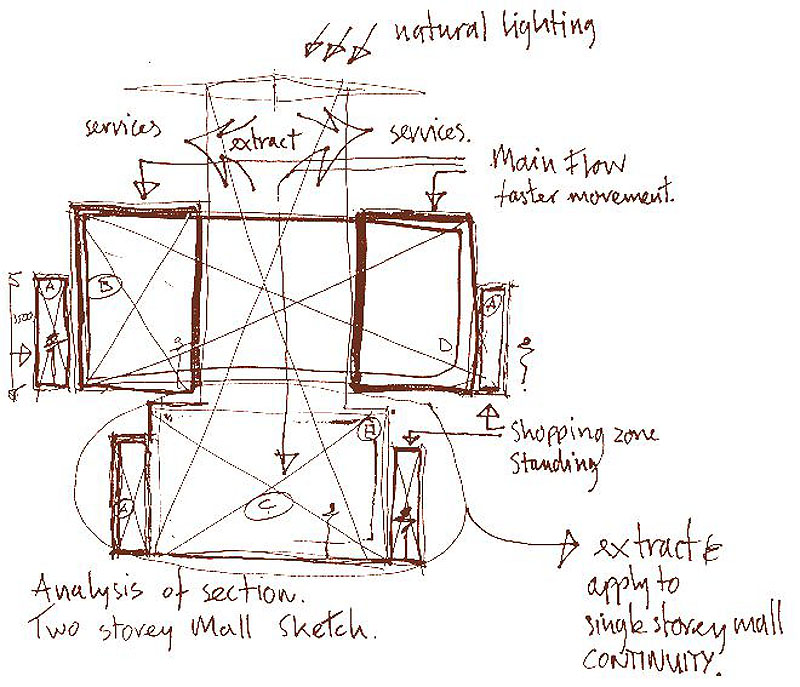 natural lighting
services
extract
services.
Main Flow
faster movement.
A
B
3500
A
D
B
Shopping zone
Standing
A
C
extract &
apply to
single storey mall
CONTINUITY.
Analysis of section.
Two storey Mall Sketch.